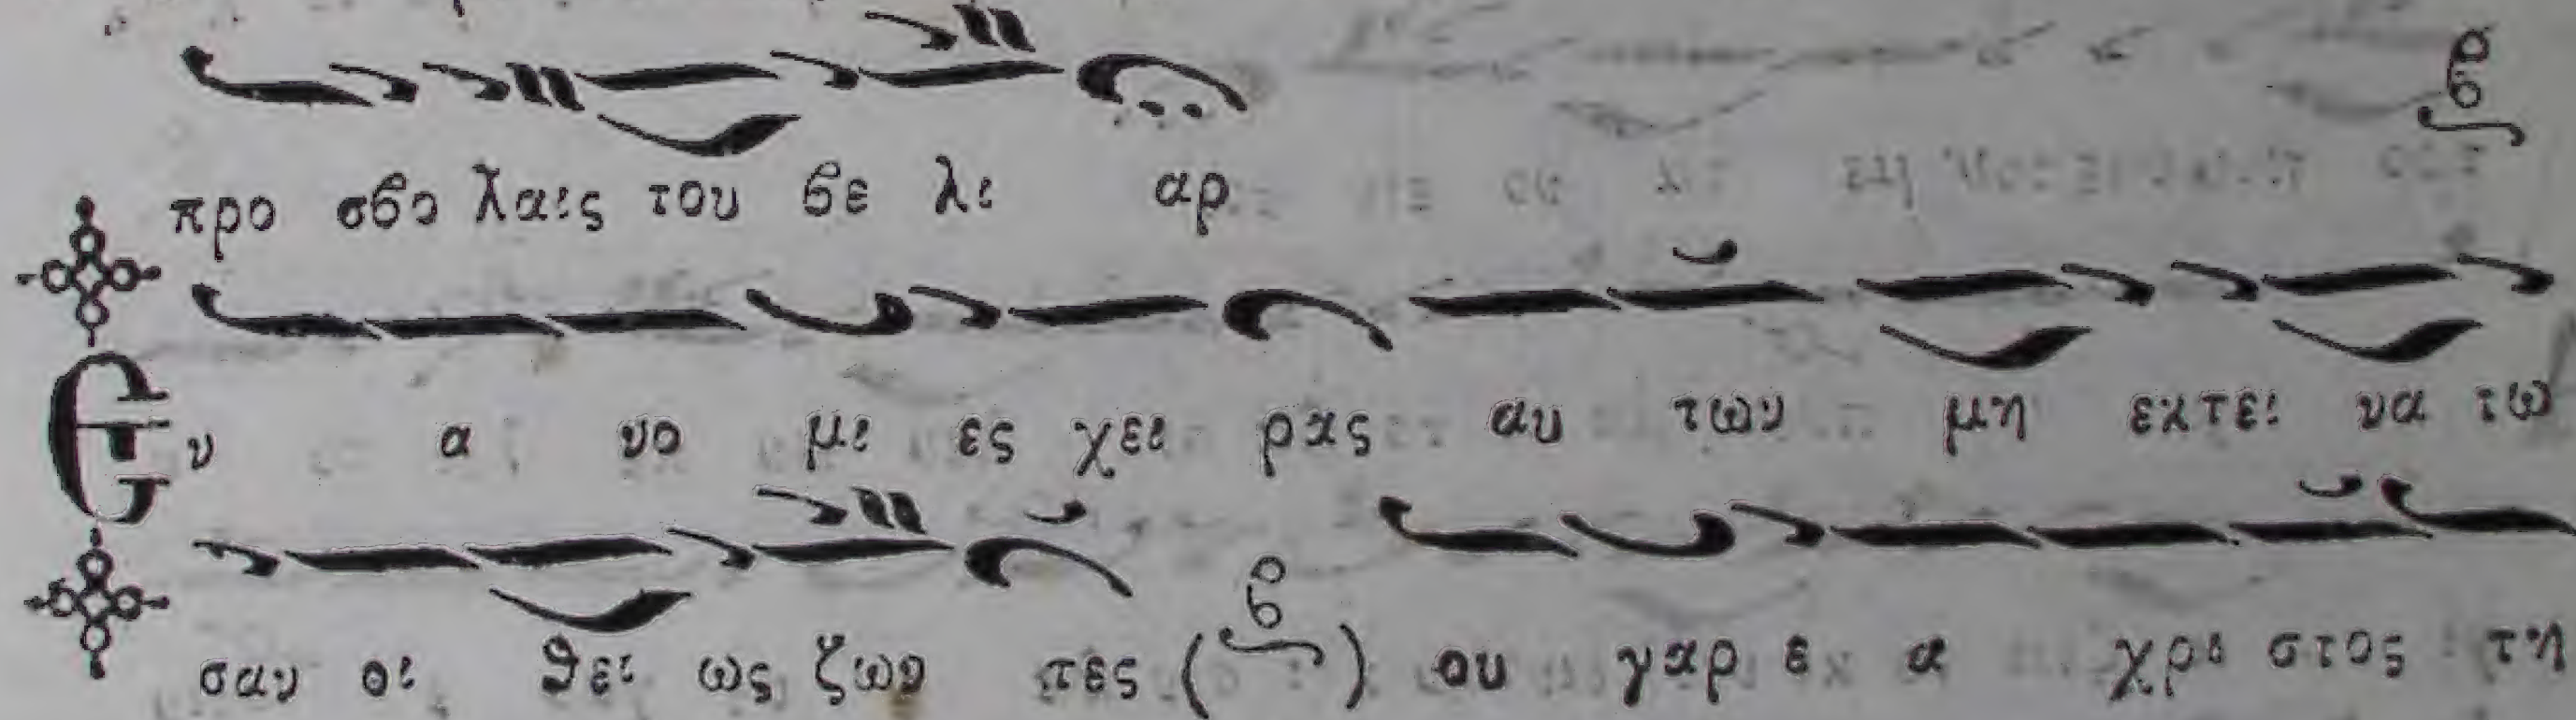 προ σβο λαις του βε λι αρ
Εν α νο μι ες χει ρας αυ των μη εκτει να τω
σαν οι θει ως ζων τες ( ) ου γαρ ε α χρι στος τη